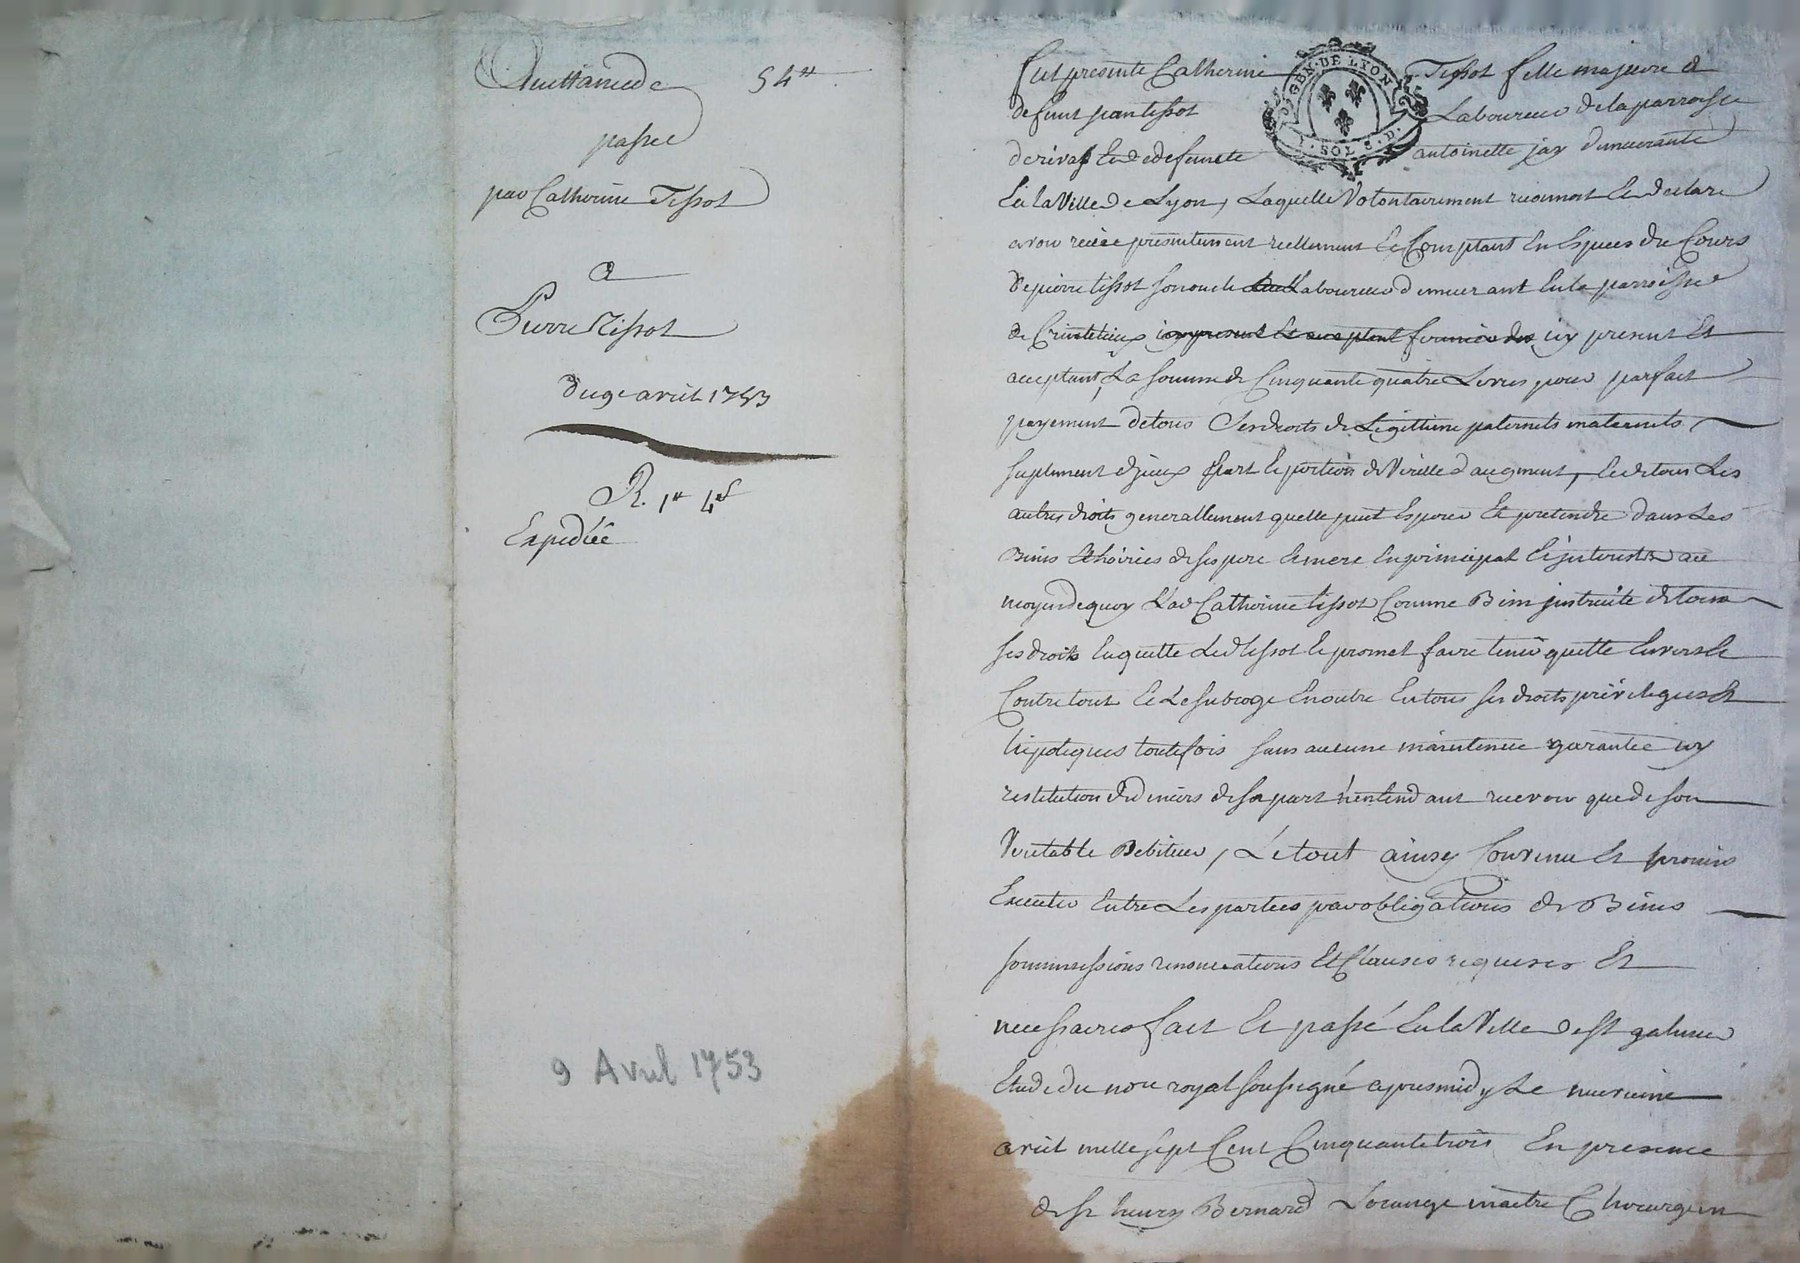 Quittance de 54#
passée
par Catherine Tissot
a
Pierre Tissot
du 9e avril 1753
R. 1# 4s
Expediée
9 Avril 1753
GEN. DE LYON
SOL
fut presente Catherine Tissot fille majeure a
defunt jean tissot Laboureur de la parroisse
de rivas et de defuncte antoinette jay demeurante
En la Ville de Lyon, Laquelle Volontairement reconnoit Et declare
avoir recue presentement reellement Et Comptant En Especes du Cours
de pierre tissot son oncle Laboureur demeurant En la parroisse
de Craintilieux icy present Et
acceptant, La somme de Cinquante quatre Livres pour parfait
payement de tous Ses droits de Legittime paternels maternels
supliment d'jceux part Et portion de Virille d'augment, Et de tous Les
autres droits generallement quelle peut Esperer Et pretendre dans Les
Biens Et hoiries de ses pere Et mere En principal Et jnterests au
moyen de quoy Lad Catherine tissot Comme Bien jnstruite de tous
ses droits En quitte Led tissot Et promet faire tenir quitte Envers Et
Contre tout Et Le subroge En outre En tous ses droits privileges Et
hipoteques toutefois sans aucune maintenue garantie ny
restitution de deniers de sa part n'entendant recevoir que de son
Veritable Debiteur, Le tout ainsy Convenu Et promis
Executer Entre Les parties par obligations de Biens
soummissions renonciations Et Clauses requises Et
necessaires fait Et passé En la Ville de St galmier
Etude du nore royal soussigné apres midy Le neuvieme
avril mille sept Cent Cinquante trois En presence
de sr henry Bernard Lorange maitre Chirurgien